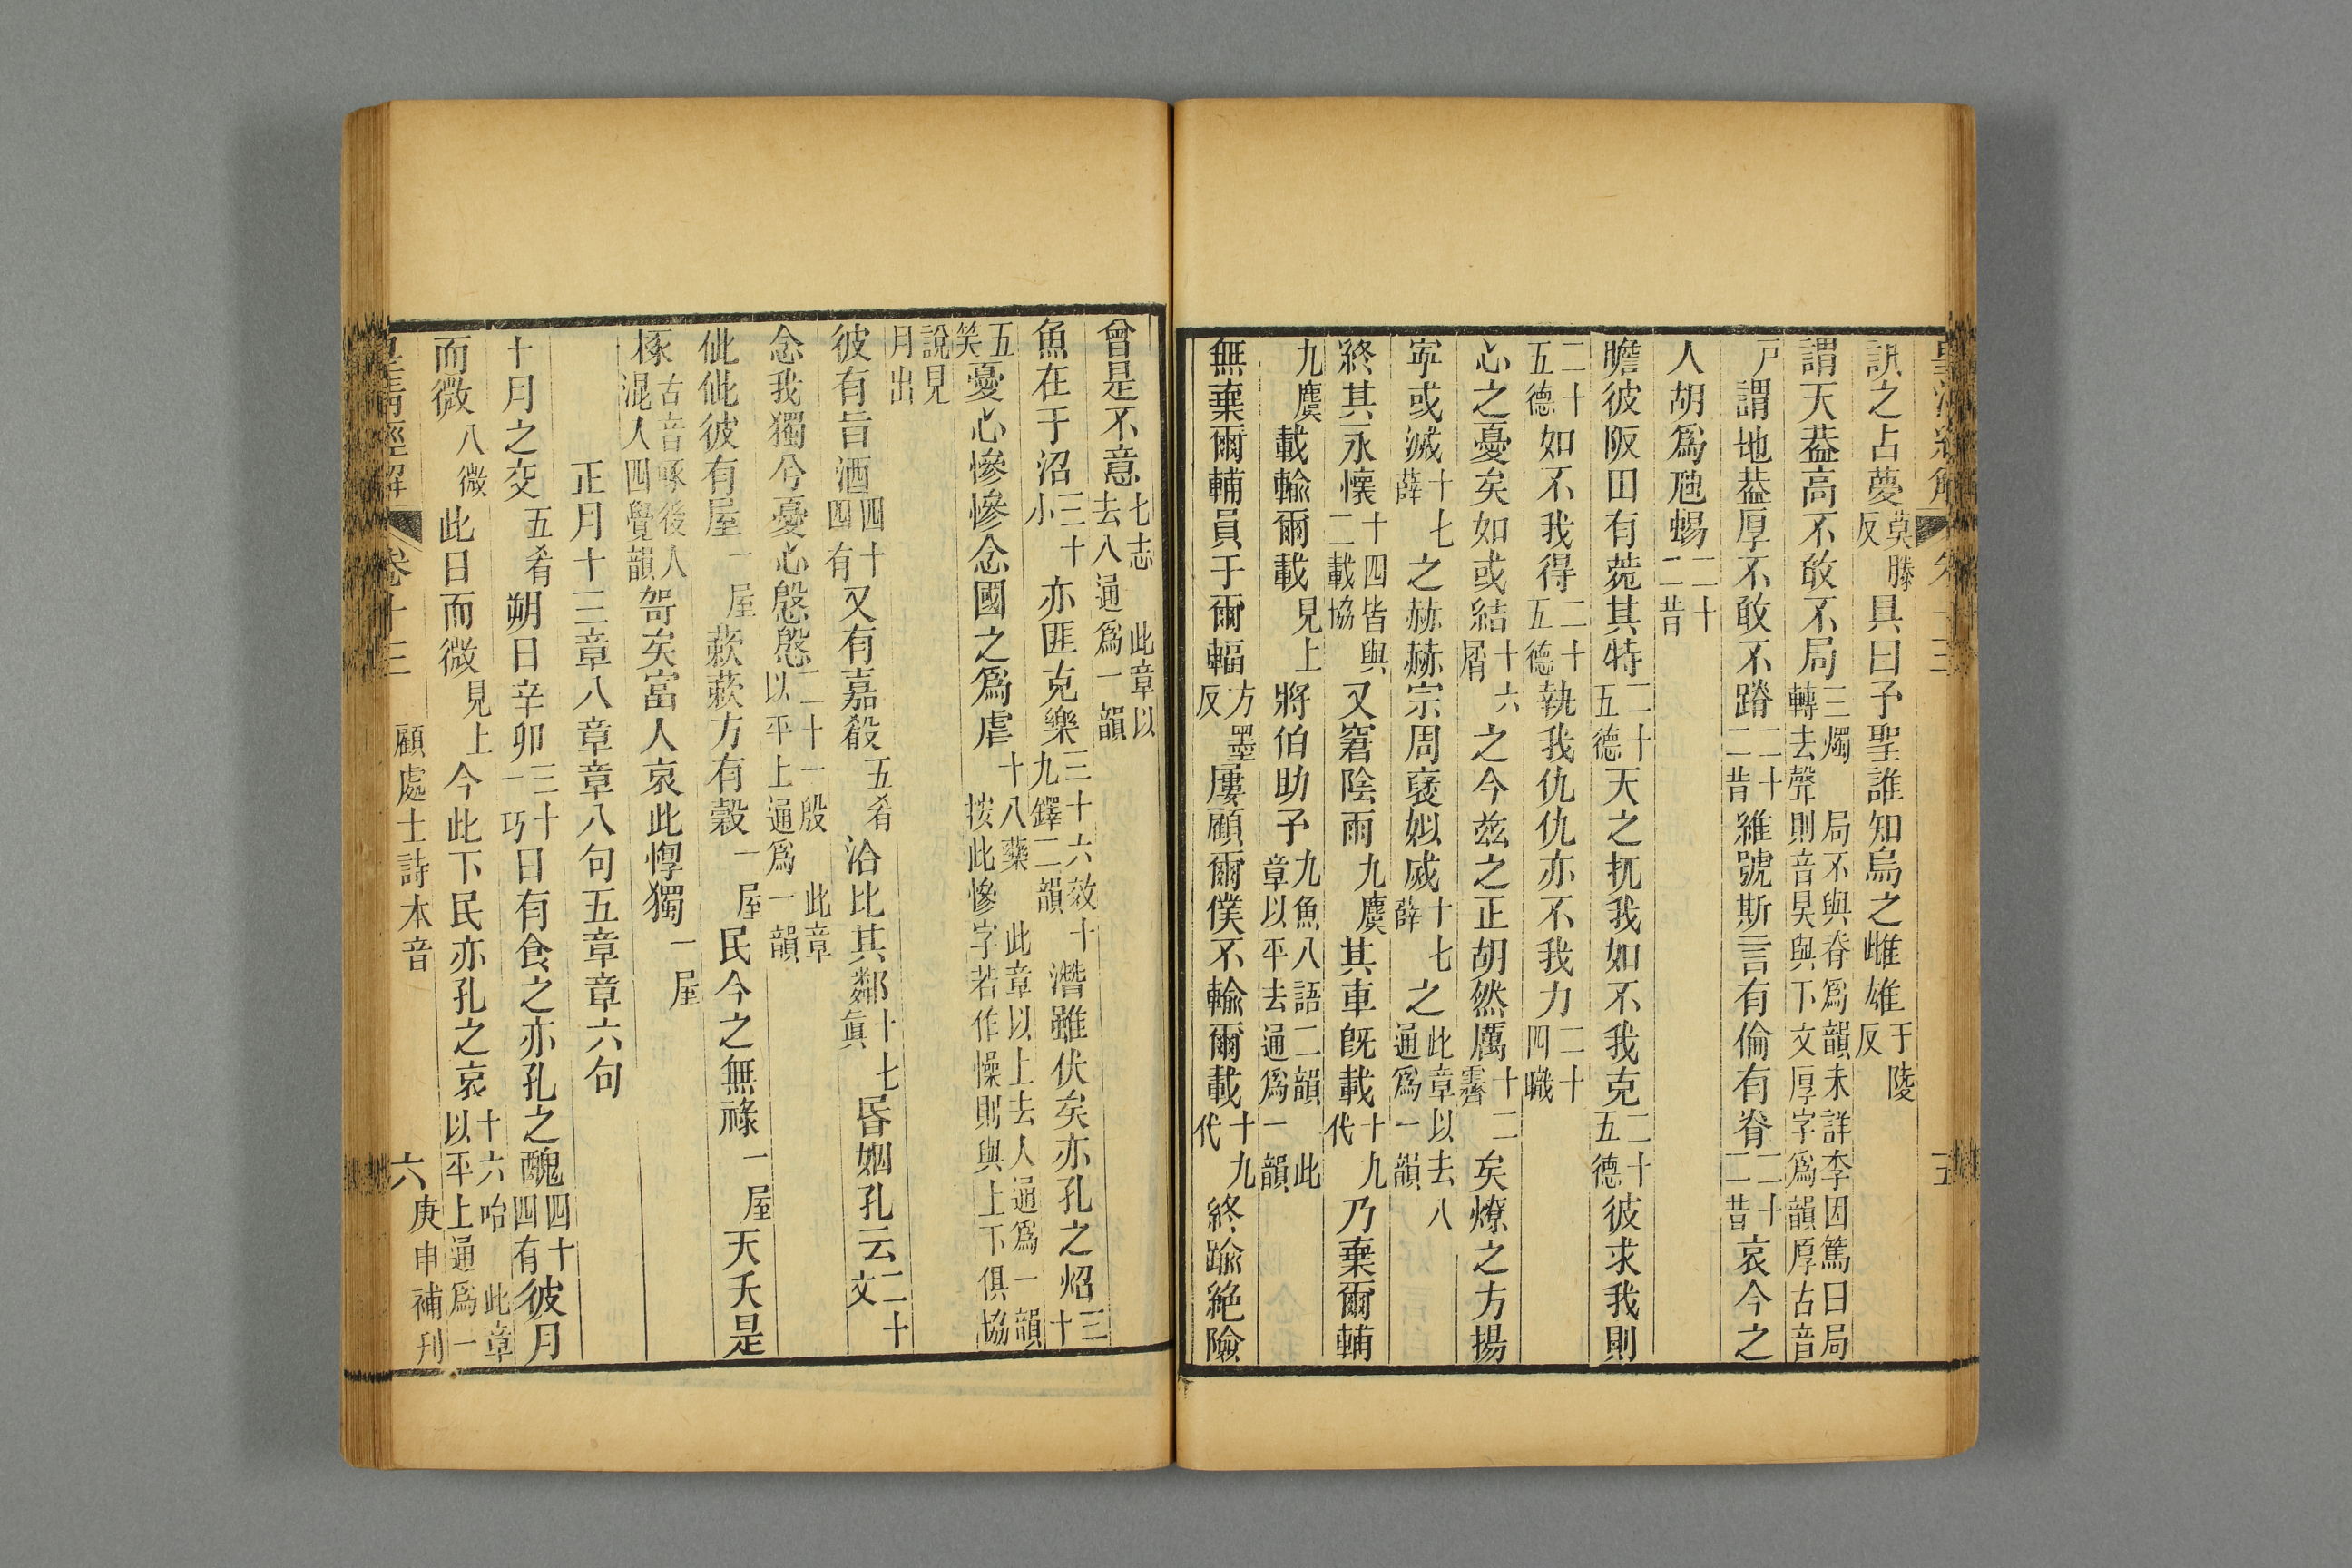 皇清經解 卷十三 五
訊之占夢莫滕反具曰予聖誰知烏之雌雄于陵反
謂天葢高不敢不局三燭 局不與脊爲韻未詳李因篤曰局轉去聲則音昊與下文厚字爲韻厚古音
戸謂地葢厚不敢不蹐二十二昔維號斯言有倫有脊二十二昔哀今之
人胡爲虺蜴二十二昔
瞻彼阪田有菀其特二十五德天之扤我如不我克二十五德彼求我則
二十五德如不我得二十五德執我仇仇亦不我力二十四職
心之憂矣如或結十六屑之今兹之正胡然厲十二霽矣燎之方揚
寧或滅十七薛之赫赫宗周襃姒烕十七薛之此章以去入通爲一韻
終其永懷十四皆與二載協又窘陰雨九麌其車旣載十九代乃棄爾輔
九麌載輸爾載見上將伯助予九魚八語二韻 此章以平去通爲一韻
無棄爾輔員于爾輻方墨反屢顧爾僕不輸爾載十九代終踰絕險
曾是不意七志 此章以去入通爲一韻
魚在于沼三十小亦匪克樂三十六效十九鐸二韻潛雖伏矣亦孔之炤三十
五笑憂心慘慘念國之爲虐十八藥 此章以上去入通爲一韻 按此慘字若作懆則與上下俱協
說見月出
彼有旨酒四十四有又有嘉殽五肴洽比其鄰十七眞昬姻孔云二十文
念我獨兮憂心慇慇二十一殷 此章以平上通爲一韻
佌佌彼有屋一屋蔌蔌方有穀一屋民今之無祿一屋天夭是
椓古音啄後人混入四覺韻哿矣富人哀此惸獨一屋
正月十三章八章章八句五章章六句
十月之交五肴朔日辛卯三十一巧日有食之亦孔之醜四十四有彼月
而微八微此日而微見上今此下民亦孔之哀十六咍 此章以平上通爲一
皇清經解 卷十三 顧處士詩本音 六 庚申補刊